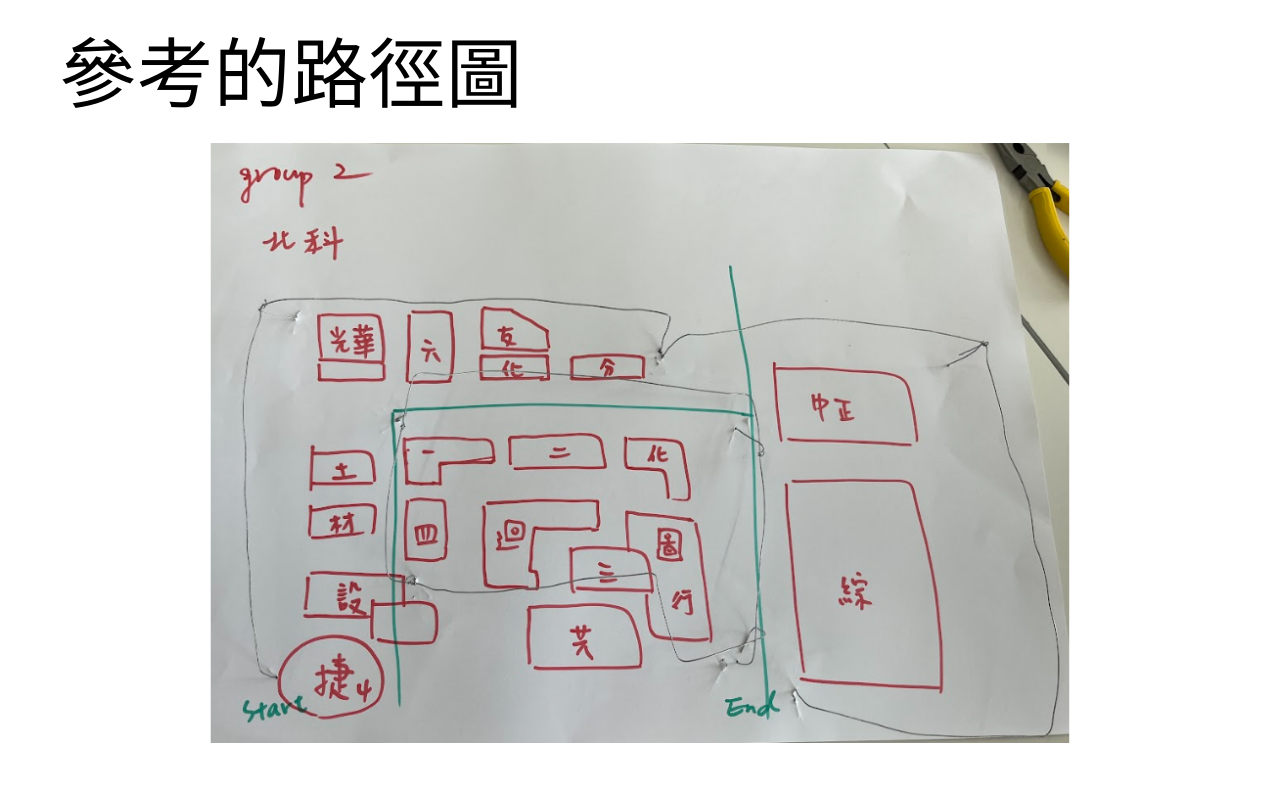 參考的路徑圖
group 2
北科
光華
六
友
化
分
中正
一
二
化
土
材
四
迴
圖
三
行
設
綜
共
捷4
Start
End